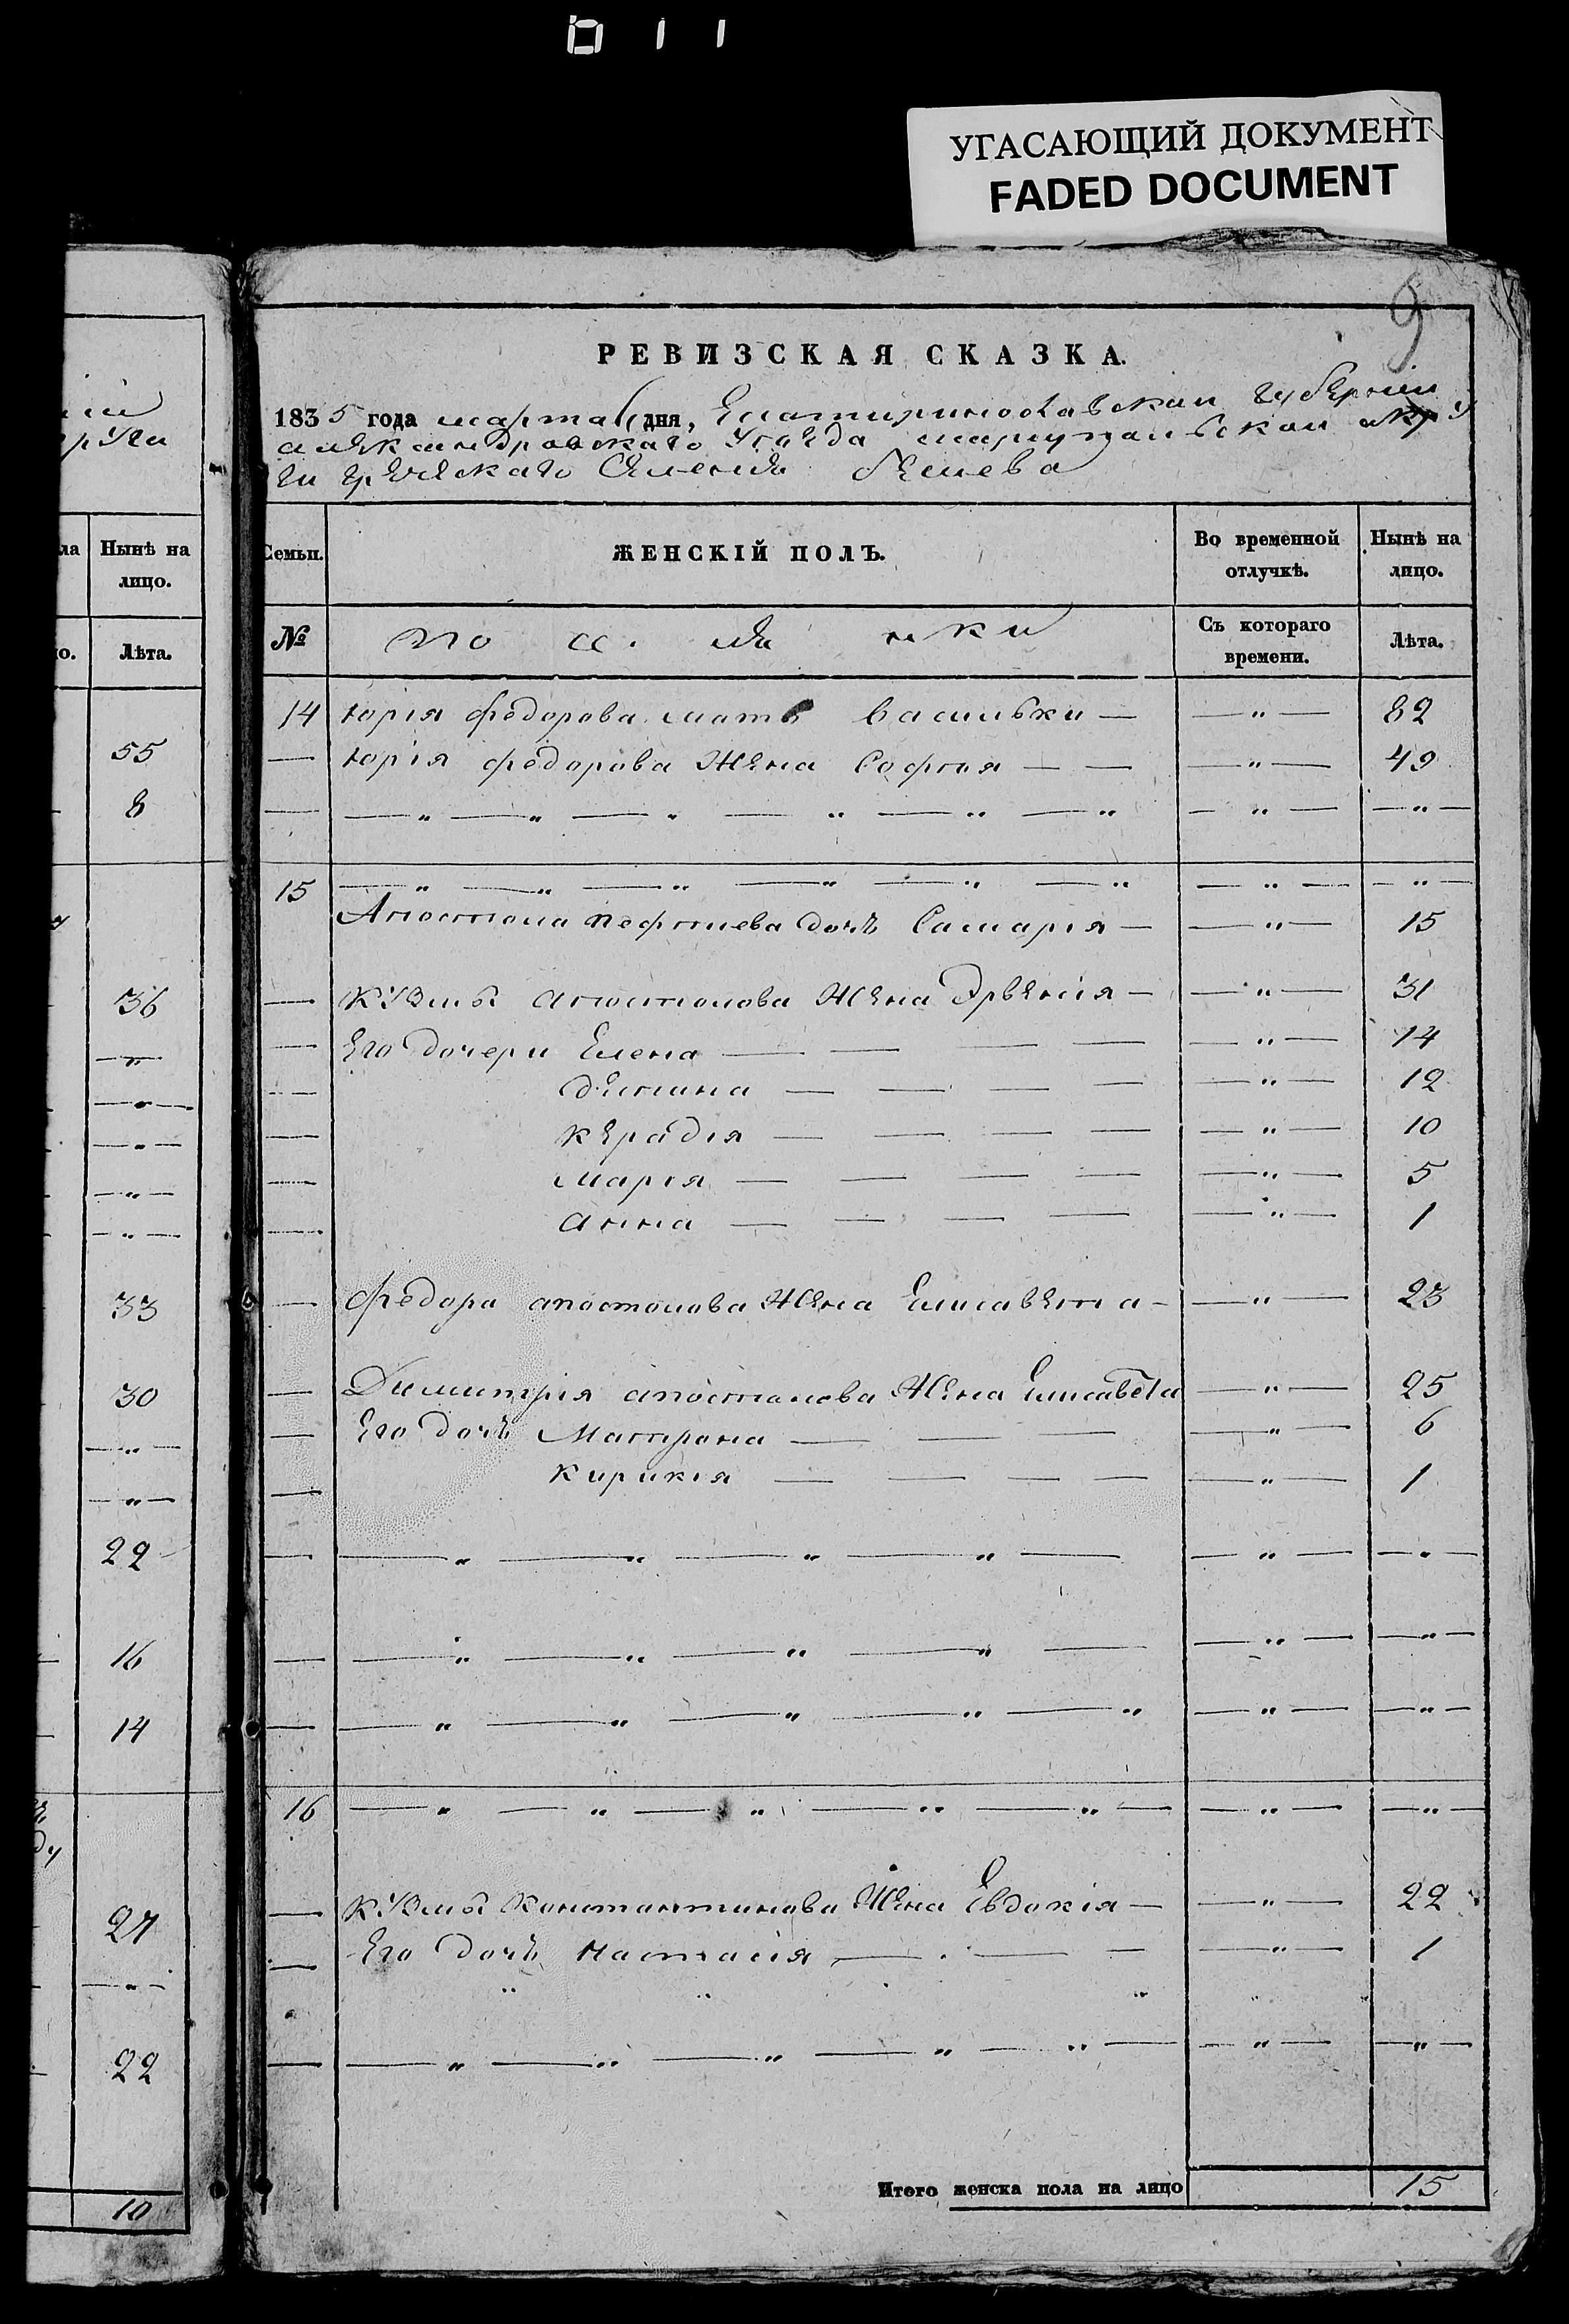 УГАСАЮЩИЙ ДОКУМЕНТ
FADED DOCUMENT
9
РЕВИЗСКАЯ СКАЗКА.
1835 года марта дня, Екатиринославскаи губернии
алѣксандровскаго уѣзда мариупольскаи окру
ги грѣчѣскаго Селения бешева
Семьи. ЖЕНСКІЙ ПОЛЪ. Во временной отлучкѣ. Нынѣ на лицо.
№ по се ля нки Съ котораго времени. Лѣта.
14 юрія федорова мать Васильки — — " — 82
— юрія федорова жена София — — — " — 49
— — " — " — " — " — " — " — " — — " —
15 — " — " — " — " — " — " — " — — " —
Апостола дочь Самарія — — " — 15
— кузмы апостолова жена — — " — 31
— Его дочери Елена — — — — — " — 14
— — — — — — " — 12
— керадія — — — — — " — 10
— марія — — — — — " — 5
— анна — — — — — " — 1
— федора апостолова жена Елисавета — — " — 23
— Димитрія апостолова жена Елисавета — " — 25
— Его дочь Матрона — — — — " — 6
— кирикія — — — — — " — 1
— — " — " — " — " — — " — — " —
— — " — " — " — " — — " — — " —
— — " — " — " — " — " — " — — " —
16 — " — " — " — " — " — — " — — " —
— кузмы константинова жена Евдокія — — " — 22
— Его дочь настасія — — — — " — 1
— — " — " — " — " — " — — " — — " —
Итого женска пола на лицо 15
ла Нынѣ на лицо.
о. Лѣта.
55
8
36
— " —
— " —
— " —
— " —
— " —
33
30
— " —
— " —
22
16
14
27
— " —
22
10